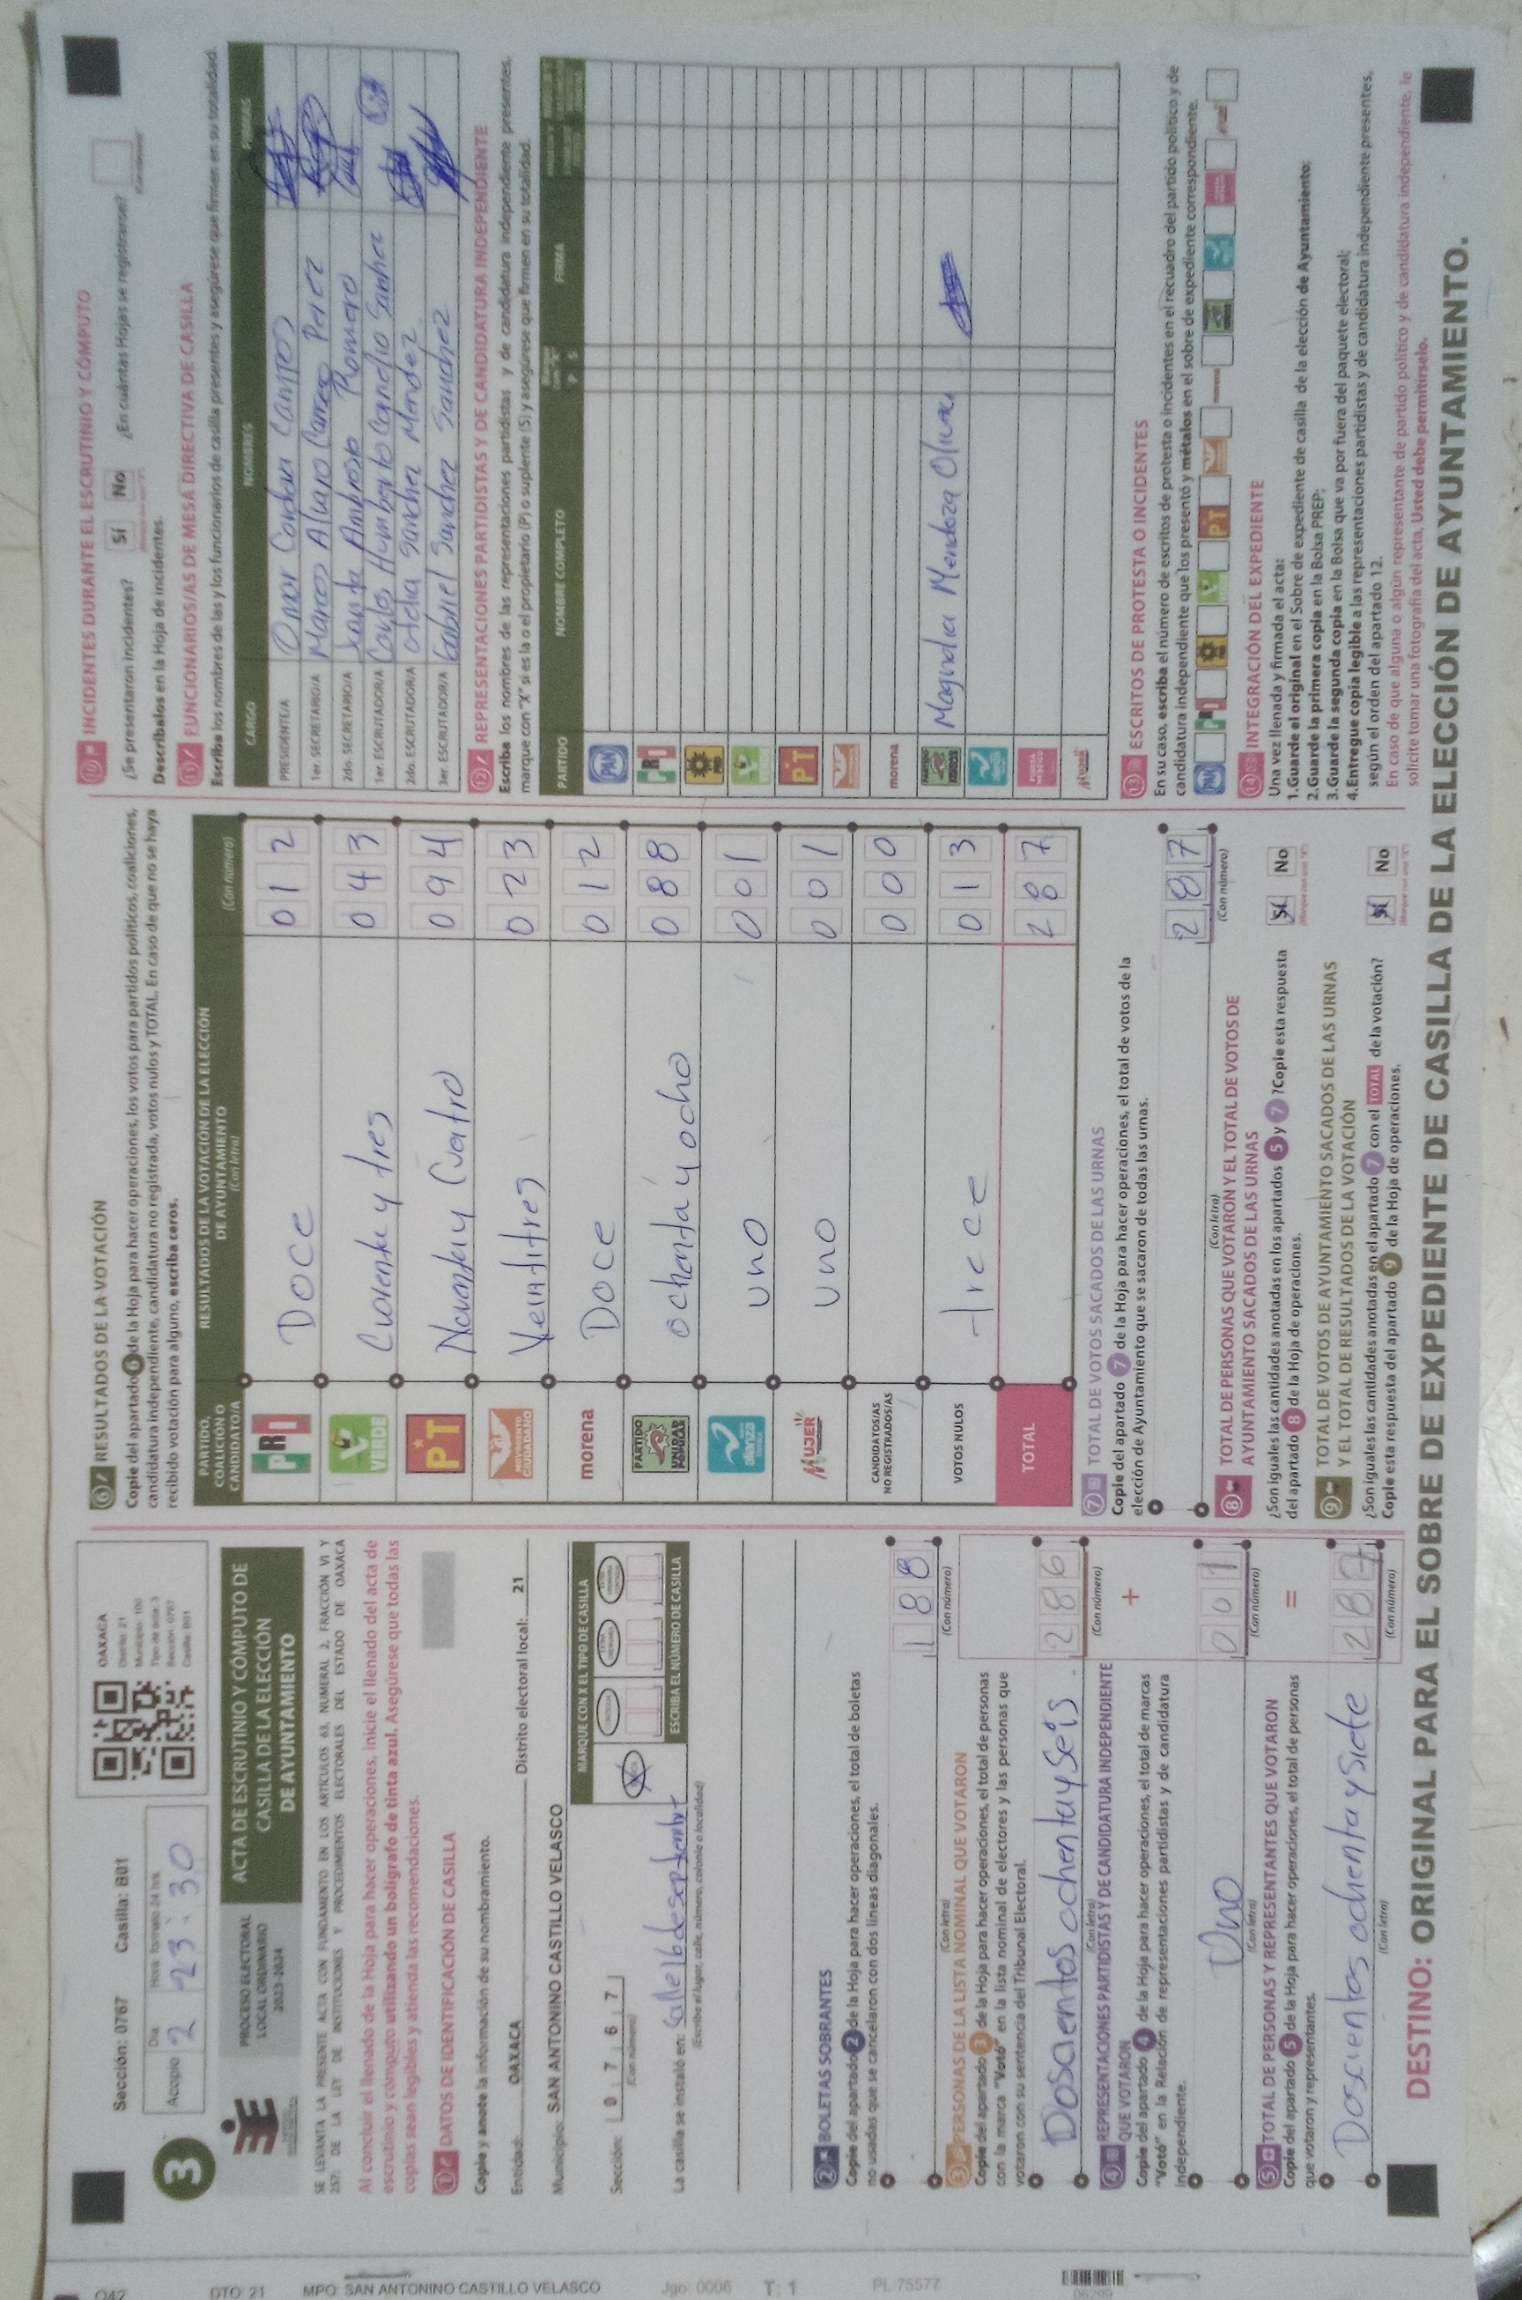 Sección: 0767 Casilla: B01
OAXACA
Distrito: 21
Municipio: 100
Tipo de acta: 3
Sección: 0767
Casilla: B01
3
Acopio
Día
2
Hora formato 24 hrs
23:30
PROCESO ELECTORAL
LOCAL ORDINARIO
2023-2024
ACTA DE ESCRUTINIO Y CÓMPUTO DE
CASILLA DE LA ELECCIÓN
DE AYUNTAMIENTO
SE LEVANTA LA PRESENTE ACTA CON FUNDAMENTO EN LOS ARTÍCULOS 63, NUMERAL 2, FRACCIÓN VI Y
257; DE LA LEY DE INSTITUCIONES Y PROCEDIMIENTOS ELECTORALES DEL ESTADO DE OAXACA
Al concluir el llenado de la Hoja para hacer operaciones, inicie el llenado del acta de
escrutinio y cómputo utilizando un bolígrafo de tinta azul. Asegúrese que todas las
copias sean legibles y atienda las recomendaciones.
1 DATOS DE IDENTIFICACIÓN DE CASILLA
Copie y anote la información de su nombramiento.
Entidad: OAXACA Distrito electoral local: 21
Municipio: SAN ANTONINO CASTILLO VELASCO
Sección: 0 7 6 7
(Con número)
MARQUE CON X EL TIPO DE CASILLA
ESCRIBA EL NÚMERO DE CASILLA
La casilla se instaló en: Calle 16 de septiembre
(Escriba el lugar, calle, número, colonia o localidad)
2 BOLETAS SOBRANTES
Copie del apartado 2 de la Hoja para hacer operaciones, el total de boletas
no usadas que se cancelaron con dos líneas diagonales.
188
(Con letra) (Con número)
3 PERSONAS DE LA LISTA NOMINAL QUE VOTARON
Copie del apartado 3 de la Hoja para hacer operaciones, el total de personas
con la marca "Votó" en la lista nominal de electores y las personas que
votaron con su sentencia del Tribunal Electoral.
Dosientos ochenta y seis 286
(Con letra) (Con número)
4 REPRESENTACIONES PARTIDISTAS Y DE CANDIDATURA INDEPENDIENTE
QUE VOTARON
+
Copie del apartado 4 de la Hoja para hacer operaciones, el total de marcas
"Votó" en la Relación de representaciones partidistas y de candidatura
independiente.
Uno 001
(Con letra) (Con número)
5 TOTAL DE PERSONAS Y REPRESENTANTES QUE VOTARON
=
Copie del apartado 5 de la Hoja para hacer operaciones, el total de personas
que votaron y representantes.
Doscientos ochenta y siete 287
(Con letra) (Con número)
6 RESULTADOS DE LA VOTACIÓN
Copie del apartado 6 de la Hoja para hacer operaciones, los votos para partidos políticos, coaliciones,
candidatura independiente, candidatura no registrada, votos nulos y TOTAL. En caso de que no se haya
recibido votación para alguno, escriba ceros.
PARTIDO,
COALICIÓN O
CANDIDATO/A
RESULTADOS DE LA VOTACIÓN DE LA ELECCIÓN
DE AYUNTAMIENTO
(Con letra)
(Con número)
PRI Doce 012
VERDE Cuarenta y tres 043
PT Noventa y Cuatro 094
MOVIMIENTO CIUDADANO Veintitres 023
morena Doce 012
PARTIDO UNIDAD POPULAR ochenta y ocho 088
alianza uno 001
MUJER uno 001
CANDIDATOS/AS
NO REGISTRADOS/AS 000
VOTOS NULOS trece 013
TOTAL 287
7 TOTAL DE VOTOS SACADOS DE LAS URNAS
Copie del apartado 7 de la Hoja para hacer operaciones, el total de votos de la
elección de Ayuntamiento que se sacaron de todas las urnas.
287
(Con letra) (Con número)
8 TOTAL DE PERSONAS QUE VOTARON Y EL TOTAL DE VOTOS DE
AYUNTAMIENTO SACADOS DE LAS URNAS
¿Son iguales las cantidades anotadas en los apartados 5 y 7 ? Copie esta respuesta
del apartado 8 de la Hoja de operaciones.
Sí No
9 TOTAL DE VOTOS DE AYUNTAMIENTO SACADOS DE LAS URNAS
Y EL TOTAL DE RESULTADOS DE LA VOTACIÓN
¿Son iguales las cantidades anotadas en el apartado 7 con el TOTAL de la votación?
Copie esta respuesta del apartado 9 de la Hoja de operaciones.
Sí No
10 INCIDENTES DURANTE EL ESCRUTINIO Y CÓMPUTO
¿Se presentaron incidentes? Sí No ¿En cuántas Hojas se registraron?
Descríbalos en la Hoja de incidentes.
11 FUNCIONARIOS/AS DE MESA DIRECTIVA DE CASILLA
Escriba los nombres de las y los funcionarios de casilla presentes y asegúrese que firmen en su totalidad.
CARGO NOMBRES FIRMAS
PRESIDENTE/A Omar Cordova Campos
1er. SECRETARIO/A Marcos Alvaro Carreño Perez
2do. SECRETARIO/A Ambrosio Romero
1er. ESCRUTADOR/A Carlos Humberto Canelio Sanhez
2do. ESCRUTADOR/A otelia Sanchez Mendez
3er. ESCRUTADOR/A Gabriel Sanchez Sanchez
12 REPRESENTACIONES PARTIDISTAS Y DE CANDIDATURA INDEPENDIENTE
Escriba los nombres de las representaciones partidistas y de candidatura independiente presentes,
marque con "X" si es la o el propietario (P) o suplente (S) y asegúrese que firmen en su totalidad.
PARTIDO NOMBRE COMPLETO P S FIRMA
PAN
PRI
PRD
VERDE
PT
morena
PARTIDO UNIDAD POPULAR Magnolia Mendoza
alianza
FUERZA MÉXICO
MUJER
13 ESCRITOS DE PROTESTA O INCIDENTES
En su caso, escriba el número de escritos de protesta o incidentes en el recuadro del partido político y de
candidatura independiente que los presentó y métalos en el sobre de expediente correspondiente.
PAN PRI PT
14 INTEGRACIÓN DEL EXPEDIENTE
Una vez llenada y firmada el acta:
1.Guarde el original en el Sobre de expediente de casilla de la elección de Ayuntamiento;
2.Guarde la primera copia en la Bolsa PREP;
3.Guarde la segunda copia en la Bolsa que va por fuera del paquete electoral;
4.Entregue copia legible a las representaciones partidistas y de candidatura independiente presentes,
según el orden del apartado 12.
En caso de que alguna o algún representante de partido político y de candidatura independiente, le
solicite tomar una fotografía del acta, Usted debe permitírselo.
DESTINO: ORIGINAL PARA EL SOBRE DE EXPEDIENTE DE CASILLA DE LA ELECCIÓN DE AYUNTAMIENTO.
DTO: 21 MPO: SAN ANTONINO CASTILLO VELASCO Jgo: 0006 T: 1 PL:75577